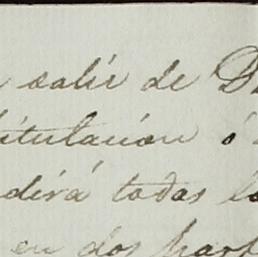 salir de
pitulacion ó
dirá todas lo
en dos part